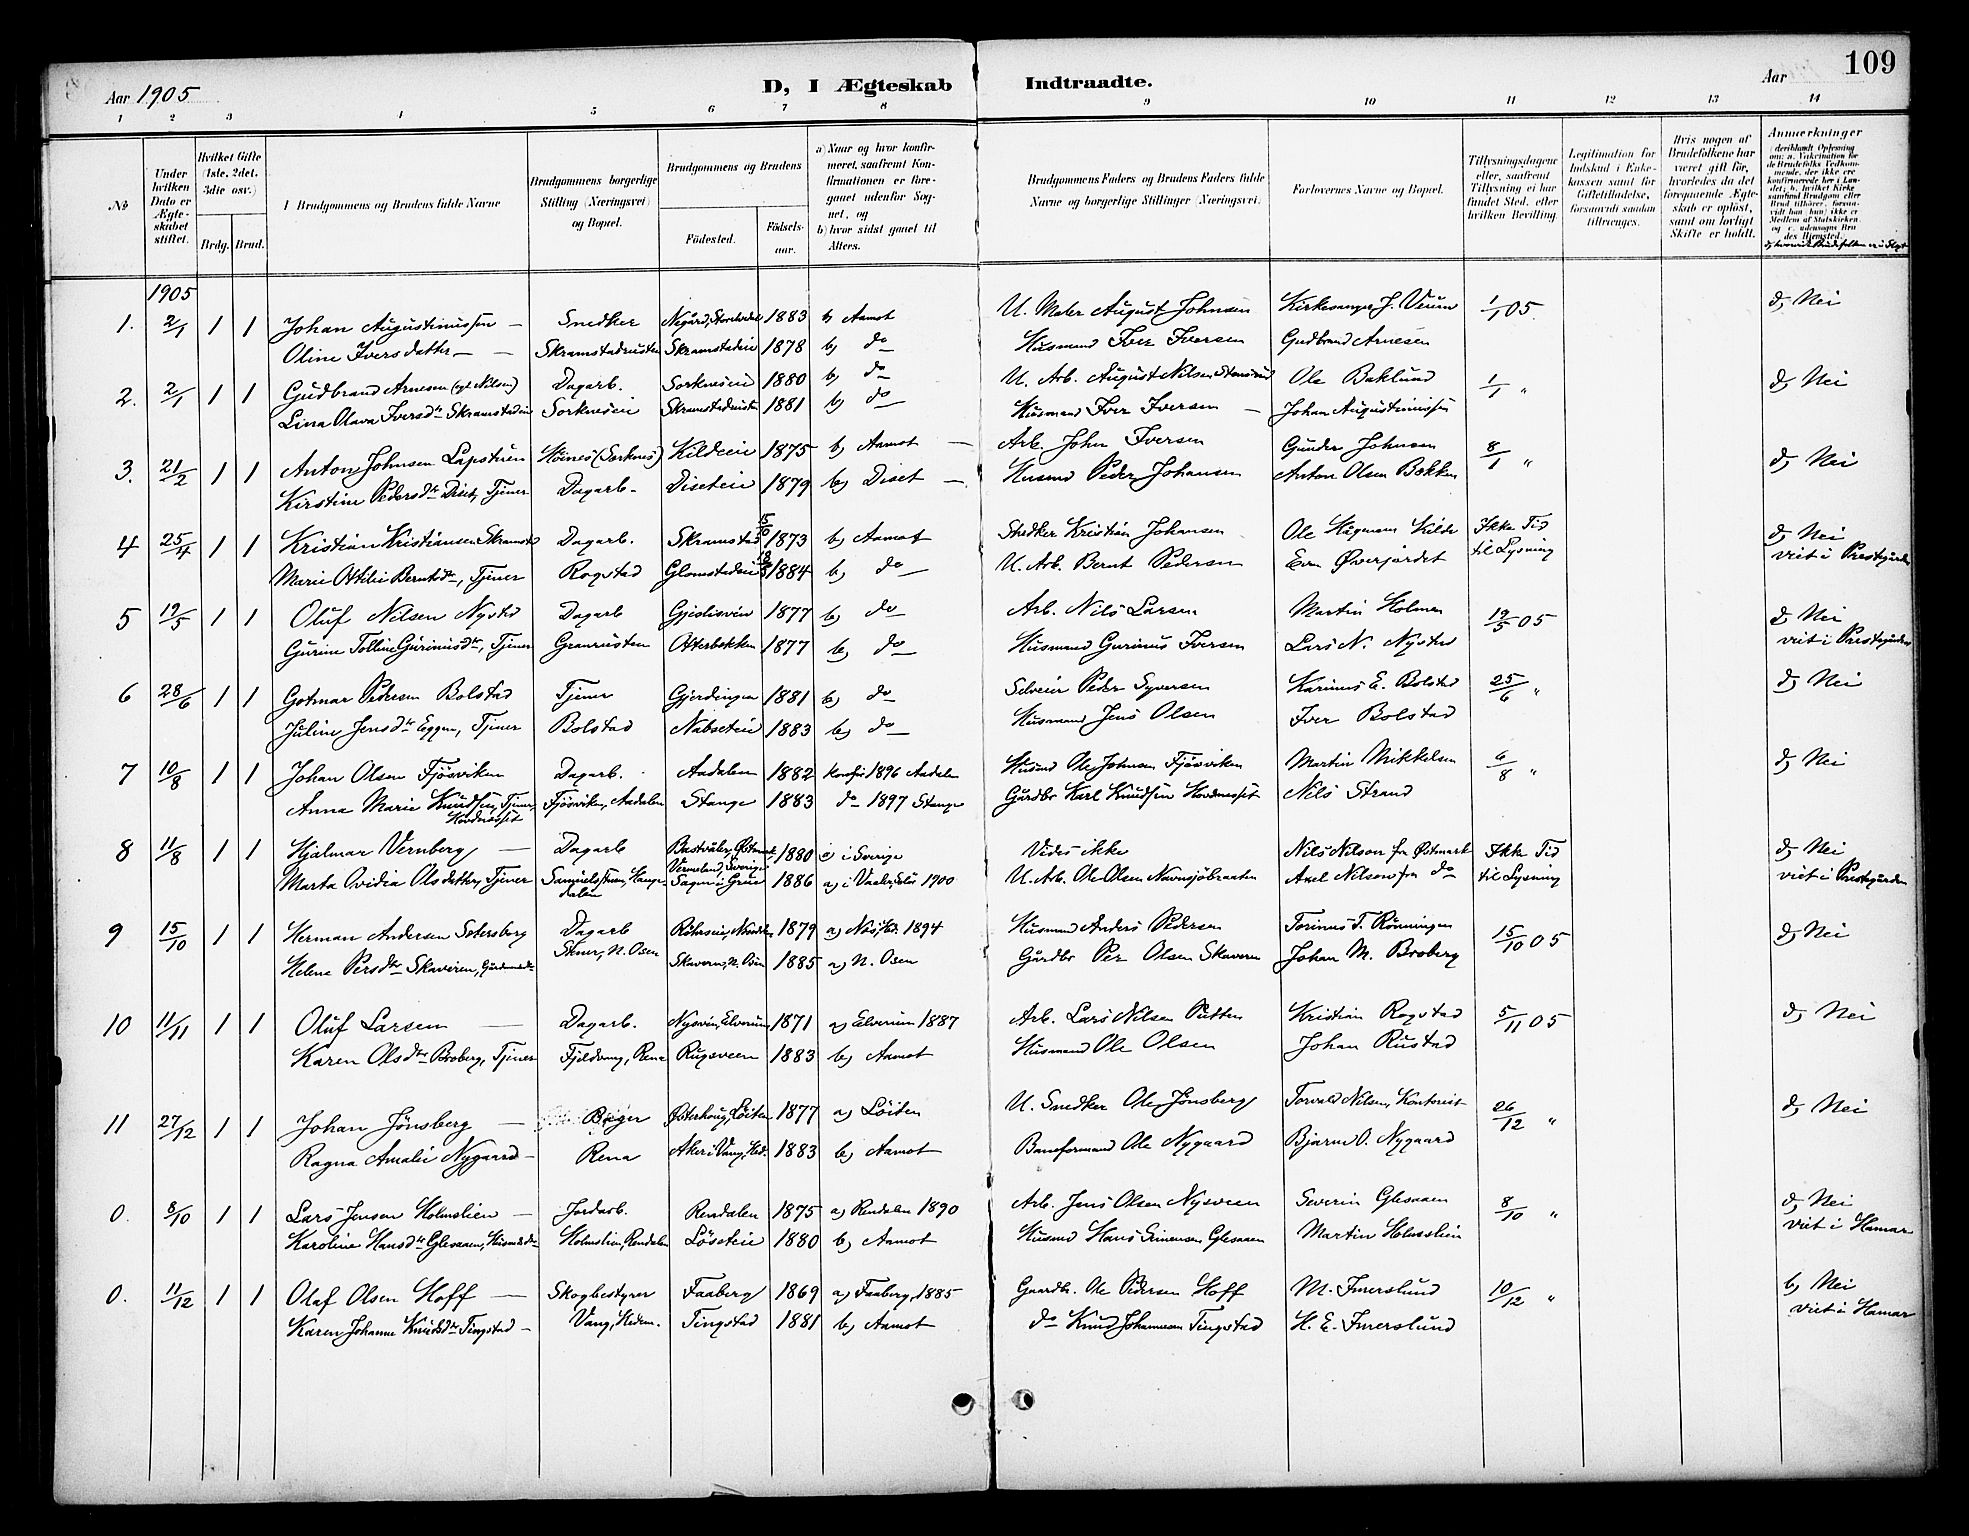 109
Aar 1905
D, I Ægteskab Indtraadte.
Aar
1 2 3 4 5 6 7 8 9 10 11 12 13 14
№
Under hvilken Dato er Ægteskabet stiftet.
Hvilket Gifte (1ste, 2det, 3die osv.)
Brdg. Brud.
Brudgommens og Brudens fulde Navne
Brudgommens borgerlige Stilling (Næringsvei) og Bopæl.
Brudgommens og Brudens
Fødested. Fødselsaar.
a) Naar og hvor konfirmeret, saafremt Konfirmationen er foregaaet udenfor Sognet, og
b) hvor sidst gaaet til Alters.
Brudgommens Faders og Brudens Faders fulde Navne og borgerlige Stillinger (Næringsvei).
Forlovernes Navne og Bopæl.
Tillysningsdagene eller, saafremt Tillysning ei har fundet Sted, efter hvilken Bevilling.
Legitimation for Indskud i Enkekassen samt for Giftetilladelse, forsaavidt saadan tiltrænges.
Hvis nogen af Brudefolkene har været gift før, hvorledes da det foregaaende Ægteskab er opløst, samt om lovligt Skifte er holdt.
Anmærkninger
1905
1. 2/1 1 1 Johan Augustinussen — Snedker 1883 b) Aamot U. Maler August Johnsen Kirkesanger J. Veum 1/1 05. d) Nei
Oline Iversdatter — Skramstadrusten Skramstadeie 1878 b) do Husmand Iver Iversen Gudbrand Arnesen
2. 2/1 1 1 Gudbrand Arnesen (egt. Nilsen) Dagarb. Sorknæseie 1880 b) do U. Arb. August Nilsen Ole Baklund 1/1 " d) Nei
Lina Olava Iversdtr Skramstadeie Sorknæseie 1881 b) do Husmand Iver Iversen — Johan Augustinussen
3. 21/2 1 1 Anton Johnsen Lapstuen Høines (Sorknes) Kildeeie 1875 b) Aamot — Arb. John Iversen Gunder Johnsen 8/1 " d) Nei
Kirstine Pedersdtr Diset, Tjener Dagarb. Diseteie 1879 b) Diset — Husmd Peder Johansen Anton Olsen Bækken
4 25/4 1 1 Kristian Kristiansen Skramstad Dagarb. Skramstad 15/10 1873 b) Aamot Snedker Kristian Johansen Ole Hagmann Kilde Ikke Tid d) Nei
Marie Otilie Berntsdtr, Tjener Rogstad Glomstadeie 1884 b) do U. Arb. Bernt Pedersen Even Øverjordet til Lysning viet i Prestegården
5 19/5 1 1 Oluf Nilsen Nysted Dagarb Gjetlisveen 1877 b) do Arb. Nils Larsen Martin Holmen 19/5 05 d) Nei
Gurine Tolline Gurinusdtr, Tjener Granrusten Otterbekken 1877 b) do Husmand Gurinus Iversen Lars N. Nysted viet i Prestegården
6 28/6 1 1 Gotmar Pedersen Bolstad Tjener Gjerdingen 1881 b) do Selveier Peder Syversen Karinus E. Bolstad 25/6 " d) Nei
Juline Jensdtr Eggen, Tjener Bolstad Nabseteie 1883 b) do Husmand Jens Olsen Iver Bolstad
7 10/8 1 1 Johan Olsen Fjøsviken Dagarb. Aadalen 1882 Konfir. 1896 Aadalen Husmd Ole Johnsen Fjøsviken Martin Mikkelsen 6/8 " d) Nei
Anna Marie Knudsen, Tjener Fjøsviken, Aadalen Stange 1883 do 1897 Stange Gårdbr Karl Knudsen Nils Strand
8 11/8 1 1 Hjalmar Vernberg — Dagarb Vermeland, Sverige 1880 a) i Sverige Vides ikke Nils Nilson fra Østmark Ikke Tid d) Nei
Marta Ovidia Olsdatter, Tjener Sagen i Grue 1886 a) i Vaaler, Solør 1900 U. Arb. Ole Olsen Navnsjøbraaten Axel Nilsen fra do til Lysning viet i Prestegården
9 15/10 1 1 Herman Andersen Setersberg Dagarb 1879 a) Nes, Hed. 1894 Husmand Anders Pedersen Torinus T. Rønningen 15/10 05 d) Nei
Helene Persdtr Skaveren, Gårdmandsdtr N. Osen Skaveren, N. Osen 1885 a) N. Osen Gårdbr Per Olsen Skaveren Johan M. Broberg
10 11/11 1 1 Oluf Larsen — Dagarb. Nysveen, Elverum 1871 a) Elverum 1887 Arb. Lars Nilsen Putten Kristian Rogstad 5/11 05 d) Nei
Karen Olsdtr Broberg, Tjener Fjeldvang, Rena Rugsveen 1883 b) Aamot Husmand Ole Olsen Johan Rustad
11 27/12 1 1 Johan Jønsberg — Bager Østerhoug, Løiten 1877 a) Løiten U. Snedker Ole Jønsberg Torvald Nilsen, Kontorist 26/12 " d) Nei
Ragna Amalie Nygaard — Rena Aker i Vang, Hed. 1883 b) Aamot Baneformand Ole Nygaard Bjarne O. Nygaard
0. 8/10 1 1 Lars Jensen Holmslien — Jordarb. Rendalen 1875 a) Rendalen 1890 Arb. Jens Olsen Nysveen Severin Glesaaen 8/10 " d) Nei
Karoline Hansdtr Glesaaen, Husmandsdtr Holmslien, Rendalen Løseteie 1880 b) Aamot Husmd Hans Simensen Glesaaen Martin Holmslien viet i Hamar
0. 11/12 1 1 Olaf Olsen Hoff — Skogbestyrer Faaberg 1869 a) Faaberg, 1885 Gaardbr. Ole Pedersen Hoff M. Imerslund 10/12 " b) Nei
Karen Johanne Knudsdtr Tingstad — Vang, Hedem. Tingstad 1881 b) Aamot do Knud Johannesen Tingstad H. E. Imerslund viet i Hamar